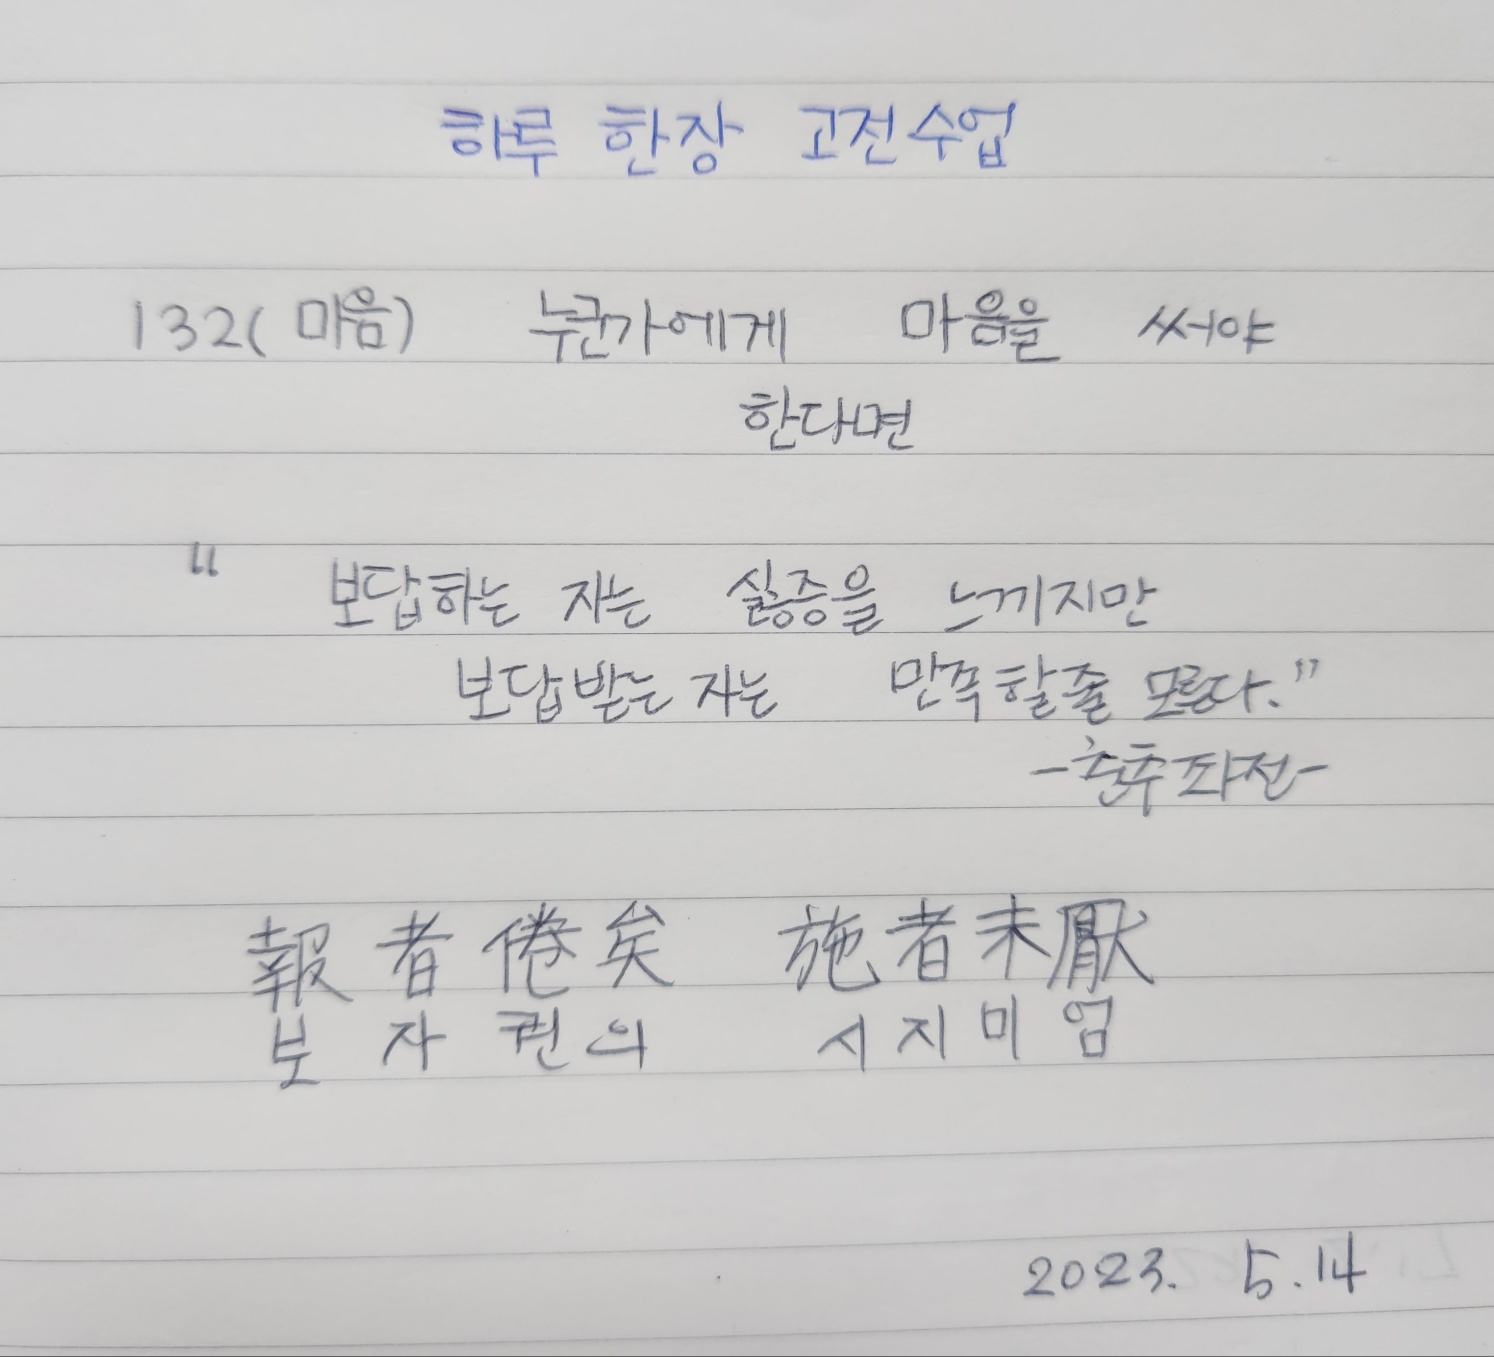 하루 한장 고전수업
132(마음) 누군가에게 마음을 써야
한다면
“ 보답하는 자는 싫증을 느끼지만
보답받는 자는 만족할줄 모른다.”
-춘추좌전-
報者倦矣 施者未厭
보자권의 시지미엄
2023. 5.14